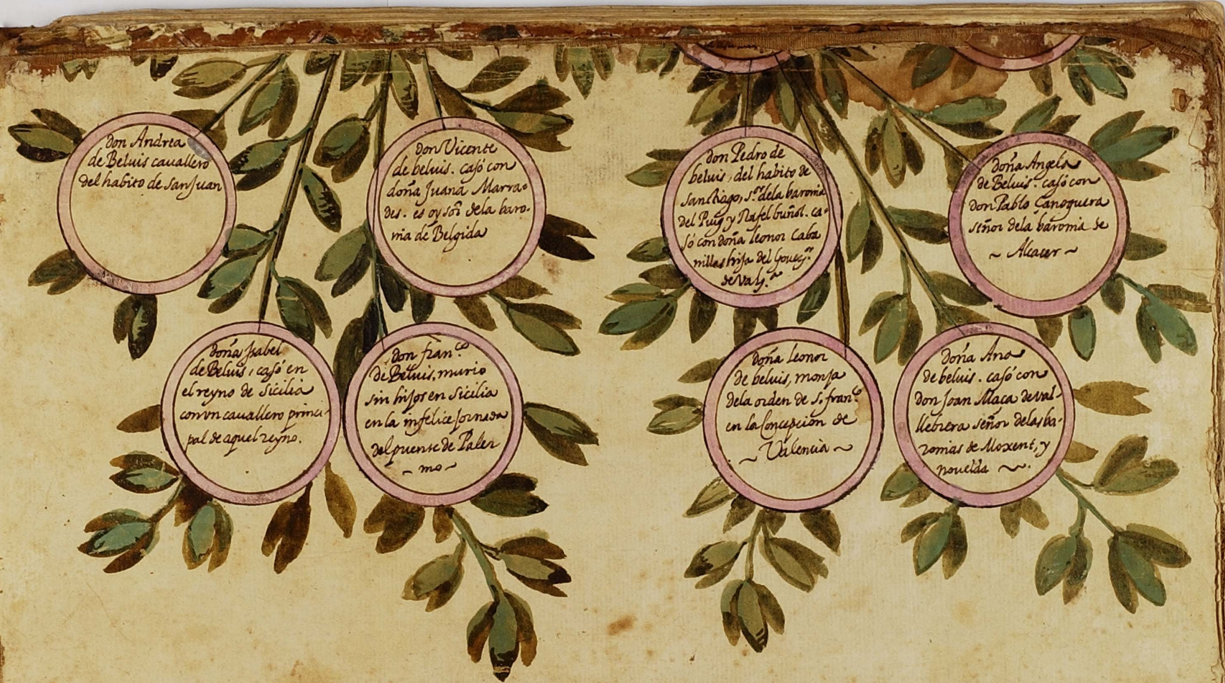 don Andrea
de Beluis cauallero
del habito de san Juan
don Vicente
de beluis. casó con
doña Juana Marra-
des. es oy sõr dela baro-
nia de Belgida
don Pedro de
beluis. del habito de
Santiago, S.or dela baronia
del Puig y Rafelbuñol. ca-
só con doña leonor Caba
nillas hija del Gouer.or
de Val.a
doña Angela
de Beluis. casó con
don Pablo Canoguera
señor dela baronia de
~ Alcacer ~
doña Isabel
de Beluis. casó en
el reyno de Sicilia
con vn cauallero princi-
pal de aquel reyno.
don fran.co
de Beluis, murio
sin hijos en Sicilia
en la infelice Jornada
del puente de Paler
~ mo ~
doña leonor
de beluis, monja
dela orden de S. fran.co
en la Concepcion de
~ Valencia ~
doña Ana
de beluis. casó con
don Joan Maca de Val-
llebrera señor delas ba-
ronias de Moxent, y
nouelda ~.